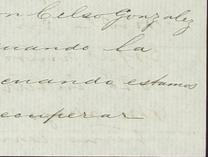 on Celso Gonzalez
uando la
enando estamos
ecuperar